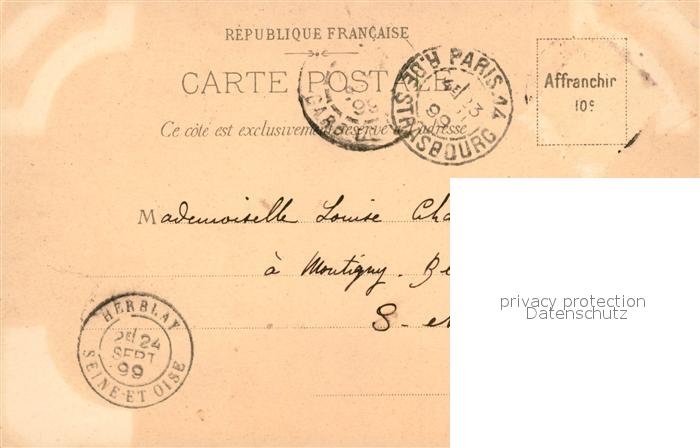 RÉPUBLIQUE FRANÇAISE
CARTE POSTALE
Ce côté est exclusivement réservé à l'adresse
99
PARIS 44
R. DE STRASBOURG
23
99
Affranchir
10c
Mademoiselle Louise Cha
à Montigny-Be
S-
privacy protection
Datenschutz
HERBLAY
24
SEPT
99
SEINE-ET-OISE